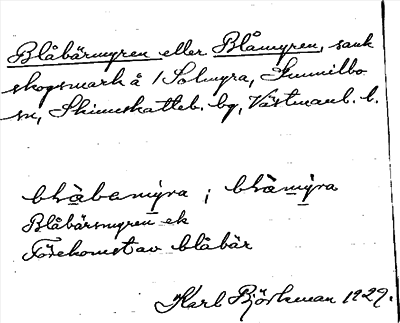 Blåbärmyren eller Blåmyren, sank
skogsmark å 1 Solmyra, Gunnilbo
sn, Skinnskatteb. bg, Västmanl. l.
blàbamy̓ra ; blàmy̓ra
Blåbärsmyren ek
Förekomst av blåbär
Karl Björkman 1929.